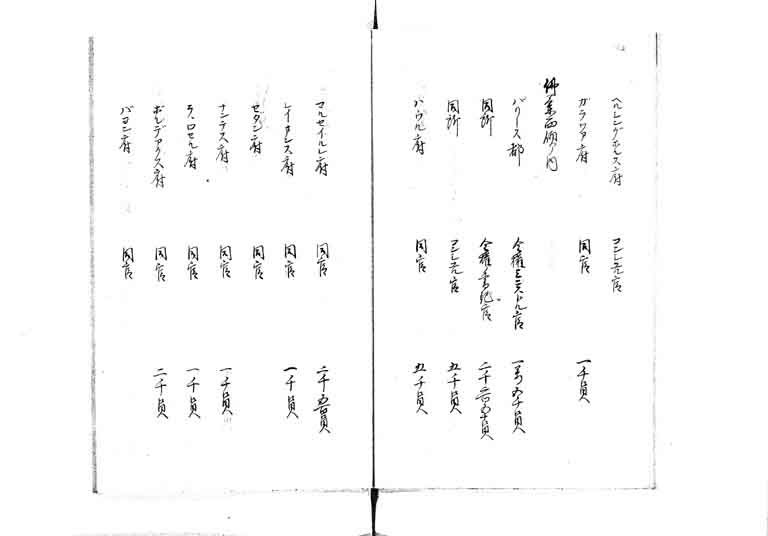 ヘルシングホルス府 コンシュル官
ガラツア府 同官 一千員
佛蘭西領ノ内
パリース都 全權ミニストル官 一万五千員
同所 全權書記官 二千二百五十員
同所 コンシュル官 五千員
ハウル府 同官 五千員
マルセイルレ府 同官 二千五百員
レイオンス府 同官 一千員
セタン府 同官
ナンテス府 同官 一千員
ラ、ロセル府 同官 一千員
ボルデアウクス府 同官 二千員
バヨン府 同官